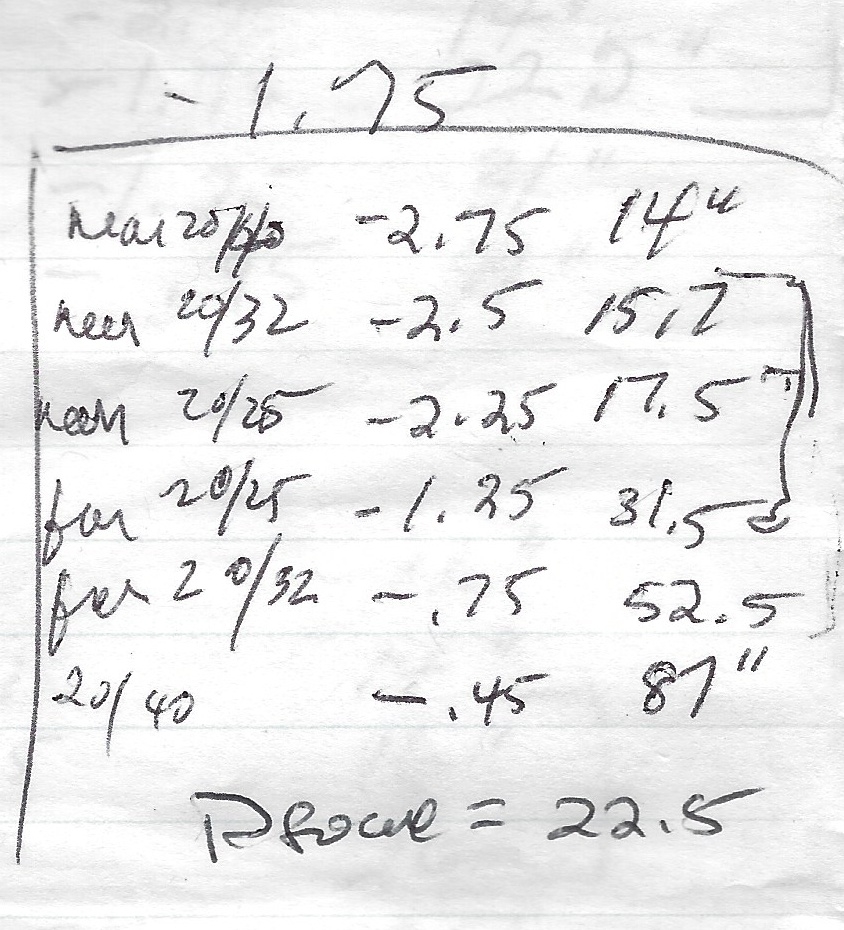 -1.75
near 20/40 -2.75 14"
near 20/32 -2.5 15.7
near 20/25 -2.25 17.5
far 20/25 -1.25 31.5
far 20/32 -.75 52.5
20/40 -.45 87"
= 22.5